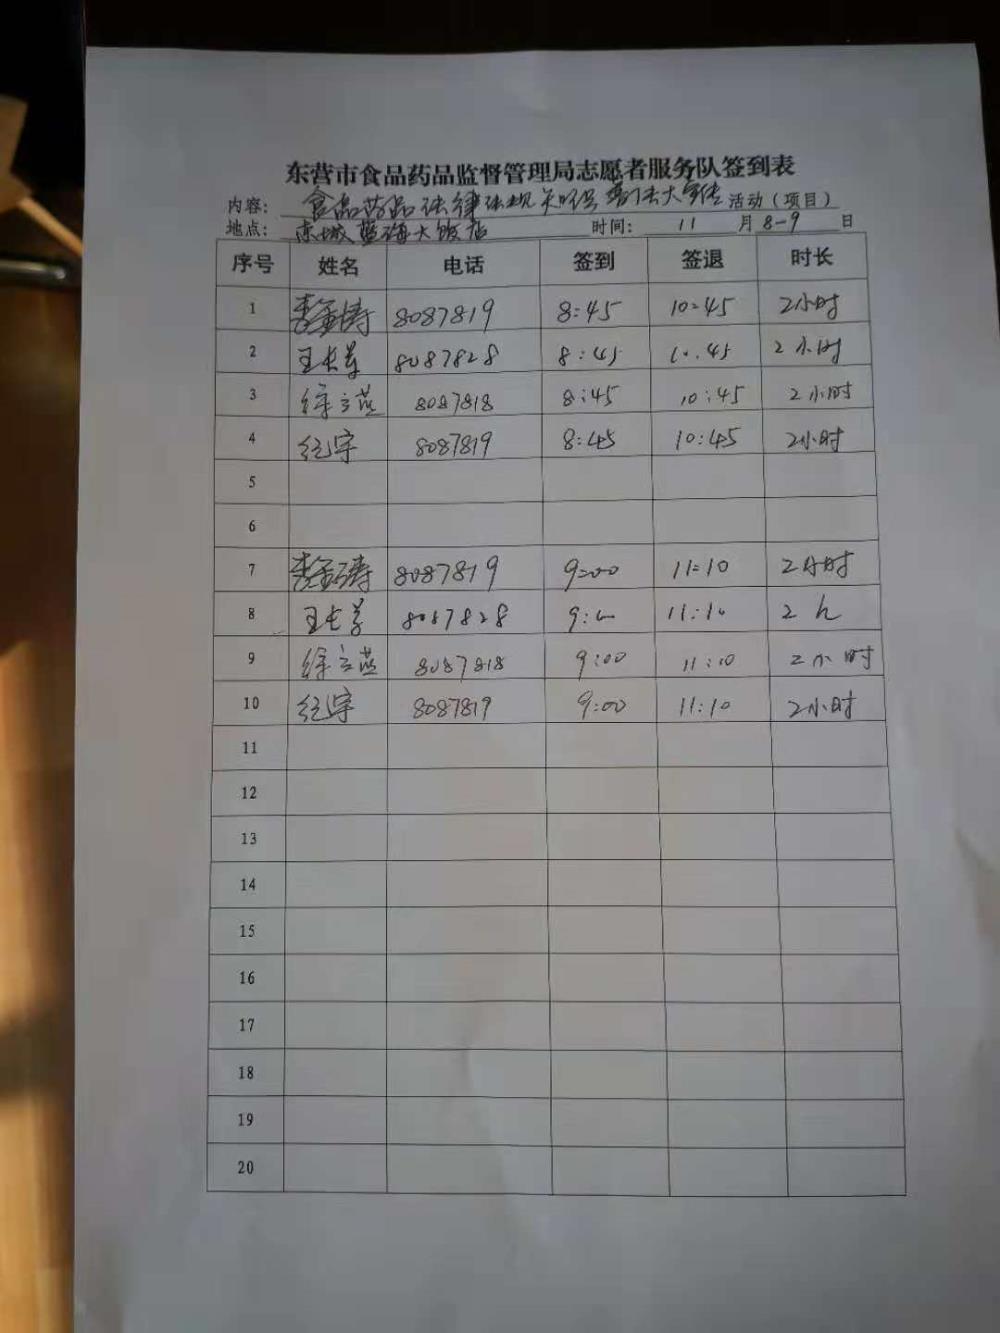 东营市食品药品监督管理局志愿者服务队签到表
内容: 食品药品法律法规 大宣传 活动(项目)
地点: 东城蓝海大饭店 时间: 11 月 8-9 日
序号 姓名 电话 签到 签退 时长
1 李金涛 8087819 8:45 10:45 2小时
2 王长 8087828 8:45 10:45 2小时
3 徐立燕 8087818 8:45 10:45 2小时
4 纪宇 8087819 8:45 10:45 2小时
5
6
7 李金涛 8087819 9:00 11:10 2小时
8 王长 8087828 9:00 11:10 2h
9 徐立燕 8087818 9:00 11:10 2小时
10 纪宇 8087819 9:00 11:10 2小时
11
12
13
14
15
16
17
18
19
20